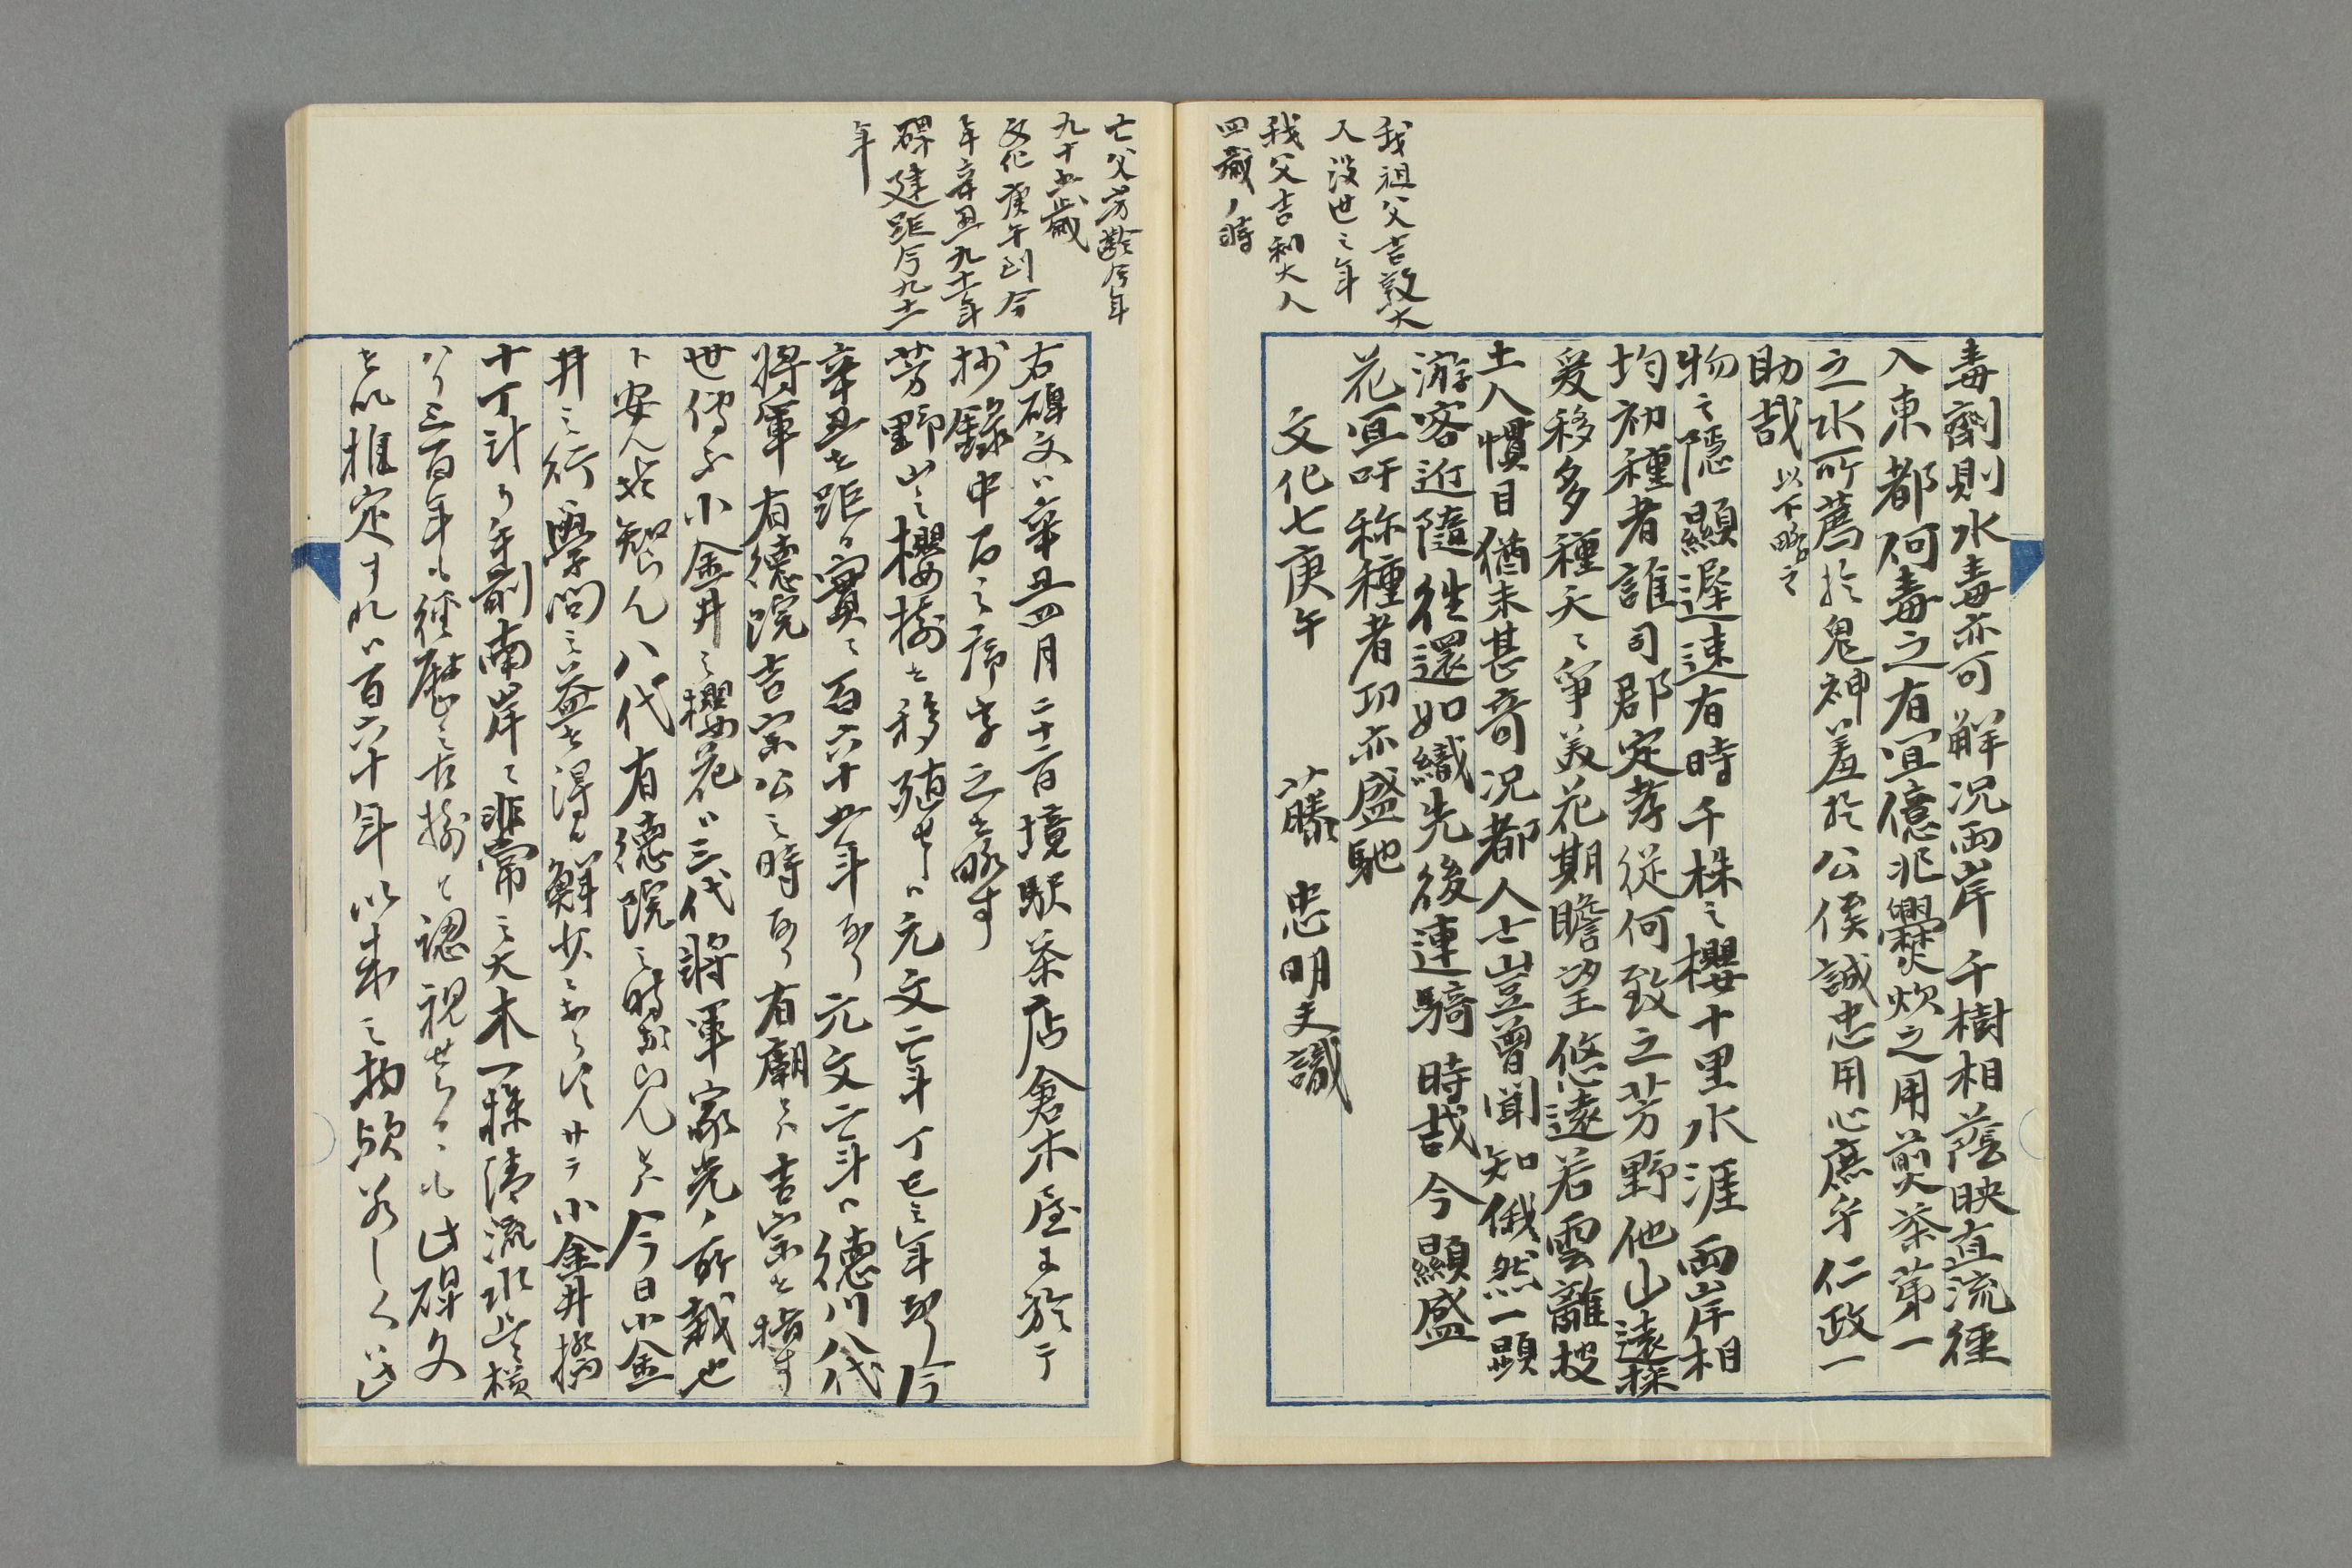 我祖父吉敦大
人没世之年
我父吉利大人
四歳ノ時
毒劑則水毒亦可解况両岸千樹相蔭映直流徑
入東都何毒之有宜億兆爨炊之用煎茶第一
之水所薦於鬼神羞於公侯誠忠用心庶乎仁政一
助哉 以下略之
物之隠顯遅速有時千株之櫻十里水涯両岸相
均初種者誰司郡定孝従何致之芳野他山遠採
爰移多種夭々爭美花期瞻望悠遠若雲離披
土人慣目猶未甚奇况都人士豈曽聞知俄然一顯
游客近隨徃還如織先後連騎時哉今顯盛
花宜吁称種者功亦盛馳
文化七庚午 藤忠明夫識
亡父芳齢今年
九十五歳
文化庚午到今
年辛丑九十二年
碑建距今九十二
年
右碑文ハ辛丑四月二十二日境駅茶店倉木屋ニ於テ
抄録中石之序李之ヲ略す
芳野山之櫻樹を移殖せしハ元文二年丁巳之年なり今
辛丑を距る實ニ百六十五年なり元文二年ハ徳川八代
将軍有徳院吉宗公之時なり有廟とハ吉宗を指す
世伝ふ小金井之櫻花ハ三代将軍家光ノ所栽也
ト安んそ智らん八代有徳院之時ならんとハ今日小金
井之行學問之益を得る鮮少にあらす 小金井橋
十丁計り手前南岸ニ非常之大木一株清流水ニ横
ハり三百年も経歴之古樹と認視せらるゝも此碑文
を以推定すれハ百六十年以来之物歟 此